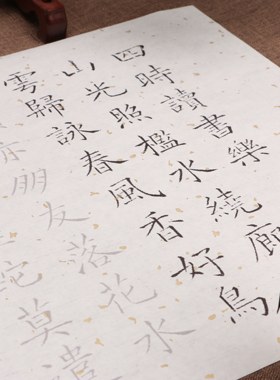 四時讀書樂
山光照檻水繞廊
雲歸詠春風香好鳥
亦朋友落花水
跎莫遣